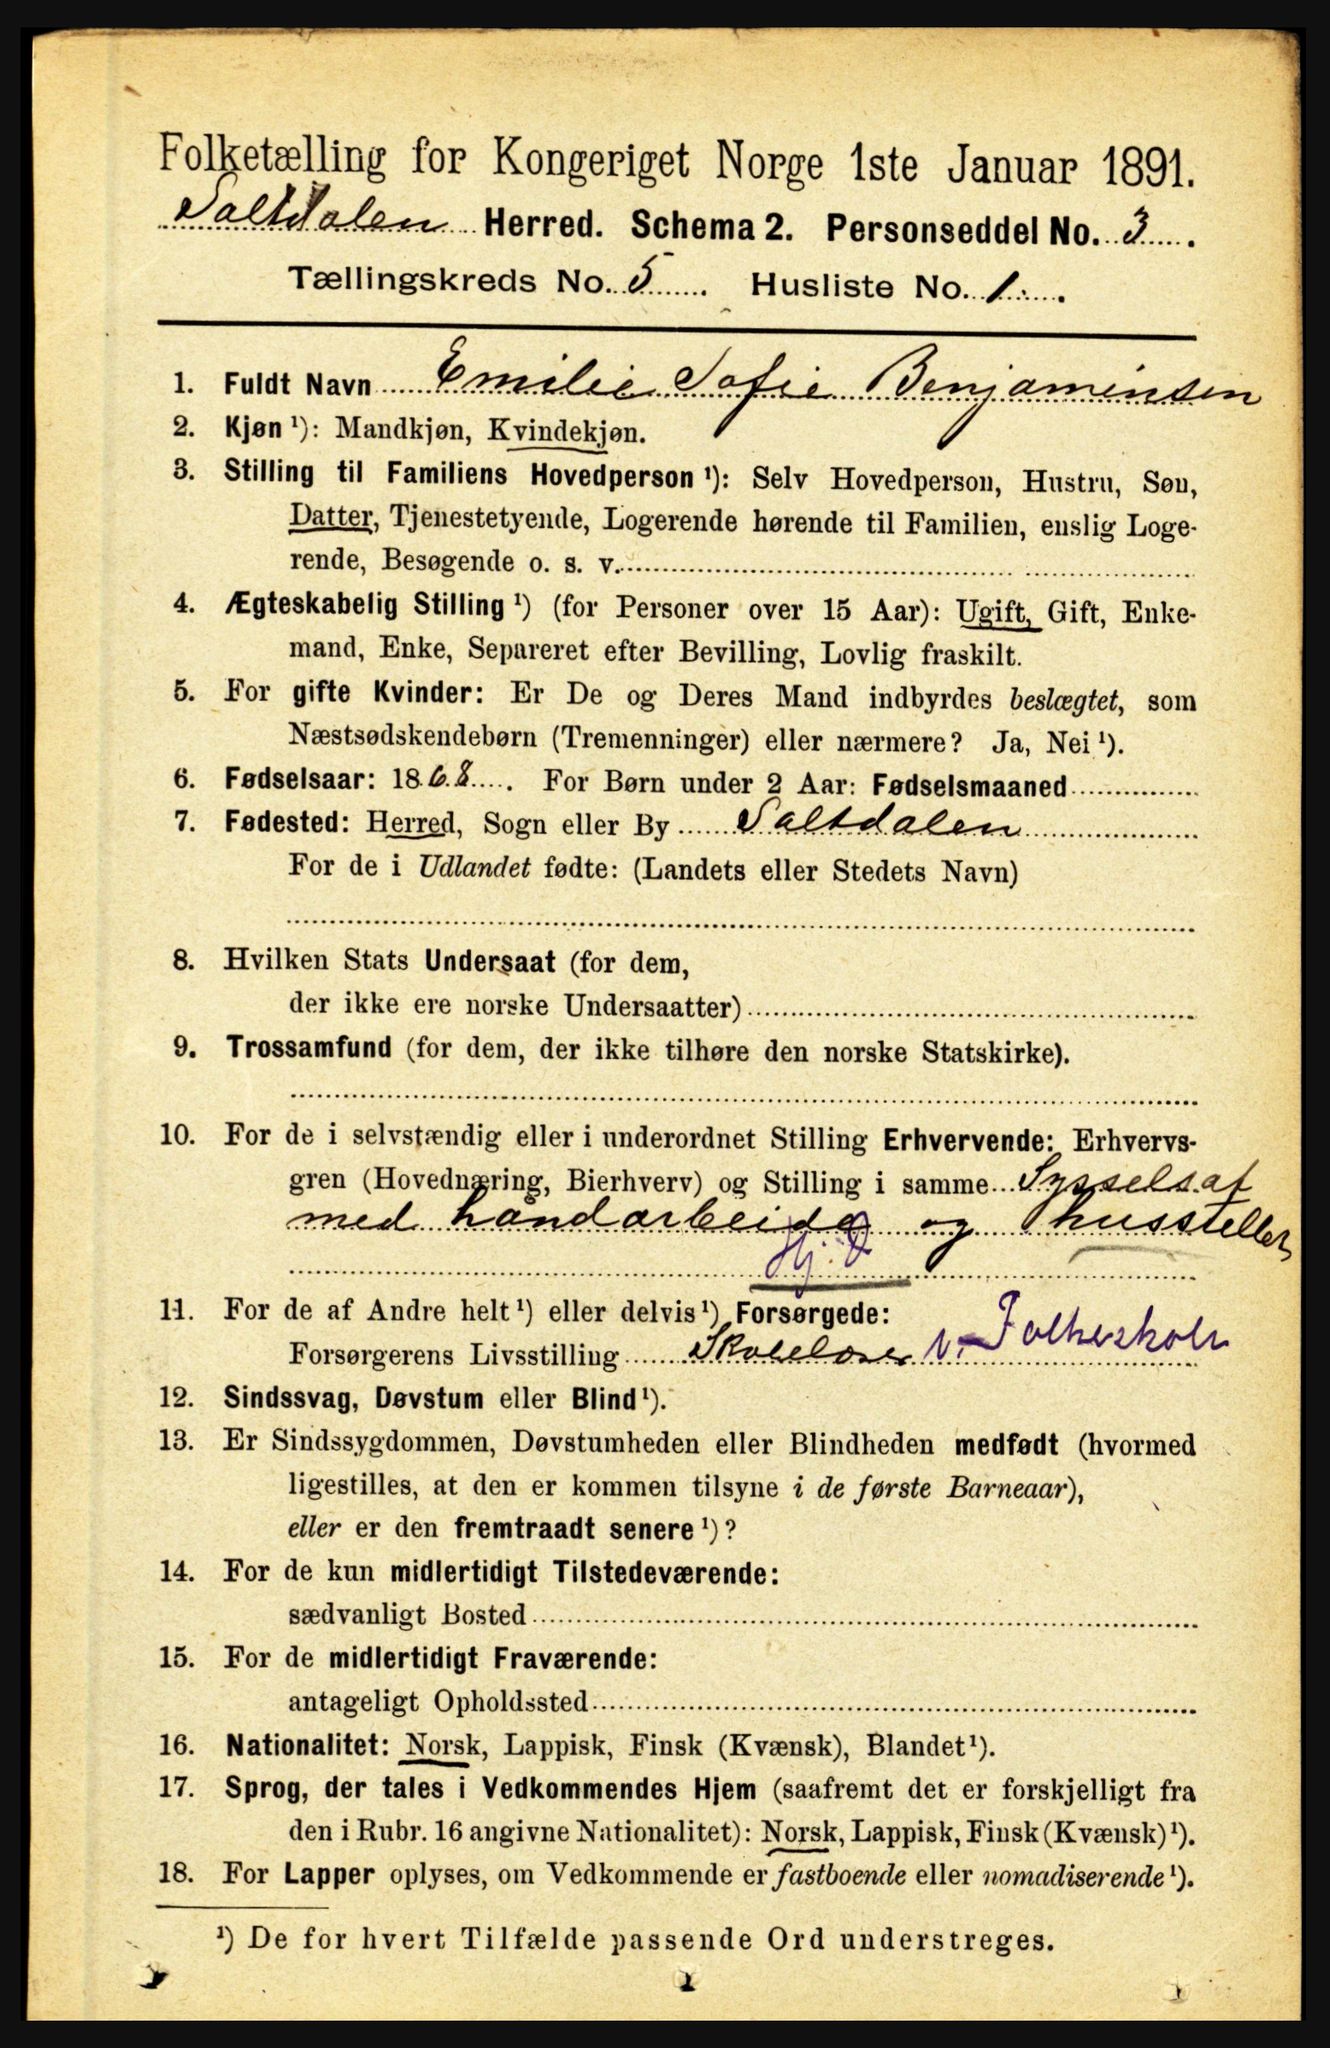 Folketælling for Kongeriget Norge 1ste Januar 1891.
Saltdalen Herred. Schema 2. Personseddel No. 3.
Tællingskreds No. 5. Husliste No. 1.
1. Fuldt Navn Emilie Sofie Benjaminsen
2. Kjøn ¹): Mandkjøn, Kvindekjøn.
3. Stilling til Familiens Hovedperson ¹): Selv Hovedperson, Hustru, Søn,
Datter, Tjenestetyende, Logerende hørende til Familien, enslig Loge-
rende, Besøgende o. s. v.
4. Ægteskabelig Stilling ¹) (for Personer over 15 Aar): Ugift, Gift, Enke-
mand, Enke, Separeret efter Bevilling, Lovlig fraskilt.
5. For gifte Kvinder: Er De og Deres Mand indbyrdes beslægtet, som
Næstsødskendebørn (Tremenninger) eller nærmere? Ja, Nei ¹).
6. Fødselsaar: 1868. For Børn under 2 Aar: Fødselsmaaned
7. Fødested: Herred, Sogn eller By Saltdalen
For de i Udlandet fødte: (Landets eller Stedets Navn)
8. Hvilken Stats Undersaat (for dem,
der ikke ere norske Undersaatter)
9. Trossamfund (for dem, der ikke tilhøre den norske Statskirke).
10. For de i selvstændig eller i underordnet Stilling Erhvervende: Erhvervs-
gren (Hovednæring, Bierhverv) og Stilling i samme Sysselsat
med håndarbeide og husstellet
Hj. D
11. For de af Andre helt ¹) eller delvis ¹) Forsørgede:
Forsørgerens Livsstilling Skolelærer v. Folkeskole
12. Sindssvag, Døvstum eller Blind ¹).
13. Er Sindssygdommen, Døvstumheden eller Blindheden medfødt (hvormed
ligestilles, at den er kommen tilsyne i de første Barneaar),
eller er den fremtraadt senere ¹)?
14. For de kun midlertidigt Tilstedeværende:
sædvanligt Bosted
15. For de midlertidigt Fraværende:
antageligt Opholdssted
16. Nationalitet: Norsk, Lappisk, Finsk (Kvænsk), Blandet ¹).
17. Sprog, der tales i Vedkommendes Hjem (saafremt det er forskjelligt fra
den i Rubr. 16 angivne Nationalitet): Norsk, Lappisk, Finsk (Kvænsk) ¹).
18. For Lapper oplyses, om Vedkommende er fastboende eller nomadiserende ¹).
¹) De for hvert Tilfælde passende Ord understreges.